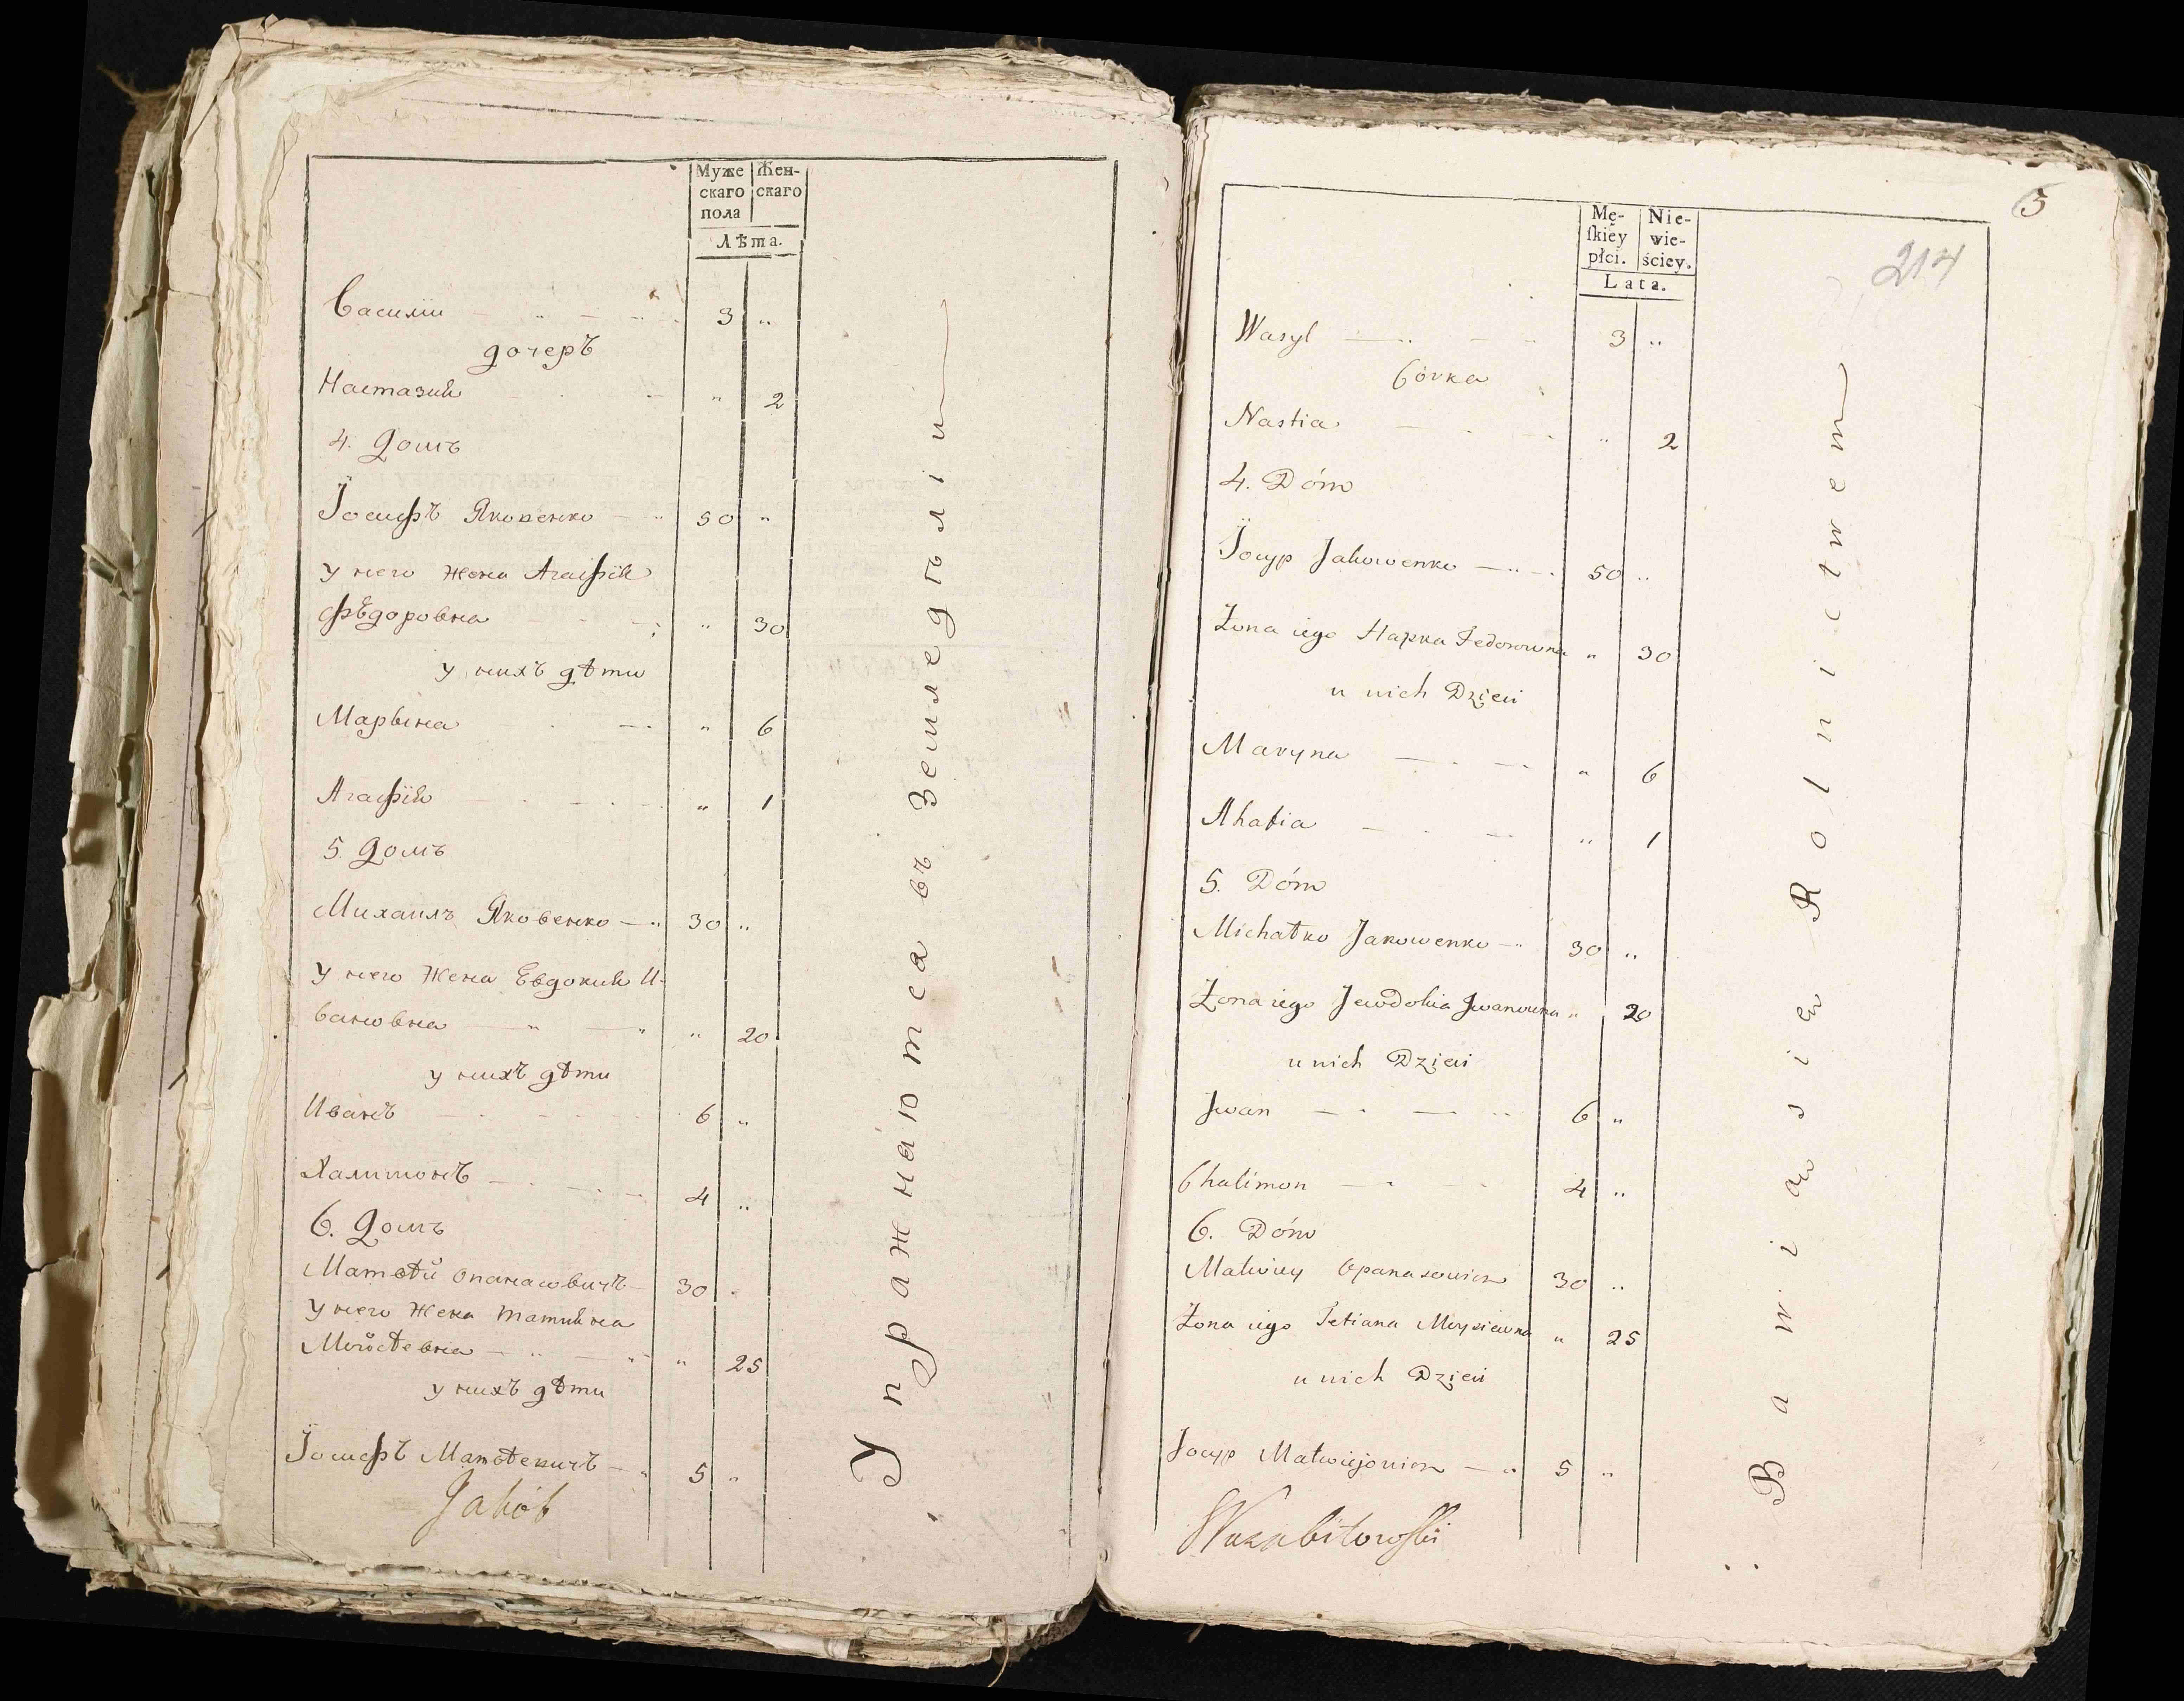 Муже
скаго
пола
Жен-
скаго
Лѣта.
Василии 3 "
дочеръ
Настазия " 2
4. Домъ
Іосифъ Яковенко 50 "
у него жена Агафія
Фѣдоровна " 30
у нихъ дѣти
Марына " 6
Агафія " 1
5. Домъ
Михаилъ Яковенко 30 "
у него жена Евдокия И-
вановна " 20
у нихъ дѣти
Иванъ 6 "
Халимонъ 4 "
6. Домъ
Матвѣй Опанасовичъ 30 "
у него жена татияна
" 25
у нихъ дѣти
Іосифъ Матвѣевичъ 5 "
Jakób
Упражнаютса въ Земледѣліи
5
214
Mę-
ſkiéy
płci.
Nie-
wie-
ściey.
Lata.
Wasyl 3 "
Córka
Nastia " 2
4. Dóm
Josyp Jakowenko 50 "
Żona iego Hapka Fedorowna " 30
u nich Dzieci
Maryna " 6
Ahafia " 1
5. Dóm
Michałko Jakowenko 30 "
Żona iego Jewdokia Jwanowna " 20
u nich Dzieci
Jwan 6 "
Chalimon 4 "
6. Dóm
Matwiey Opanasowicz 30 "
Żona iego Tetiana Moysiewna " 25
u nich Dzieci
Josyp Matwiejowicz 5 "
Bawią się Rolnictwem